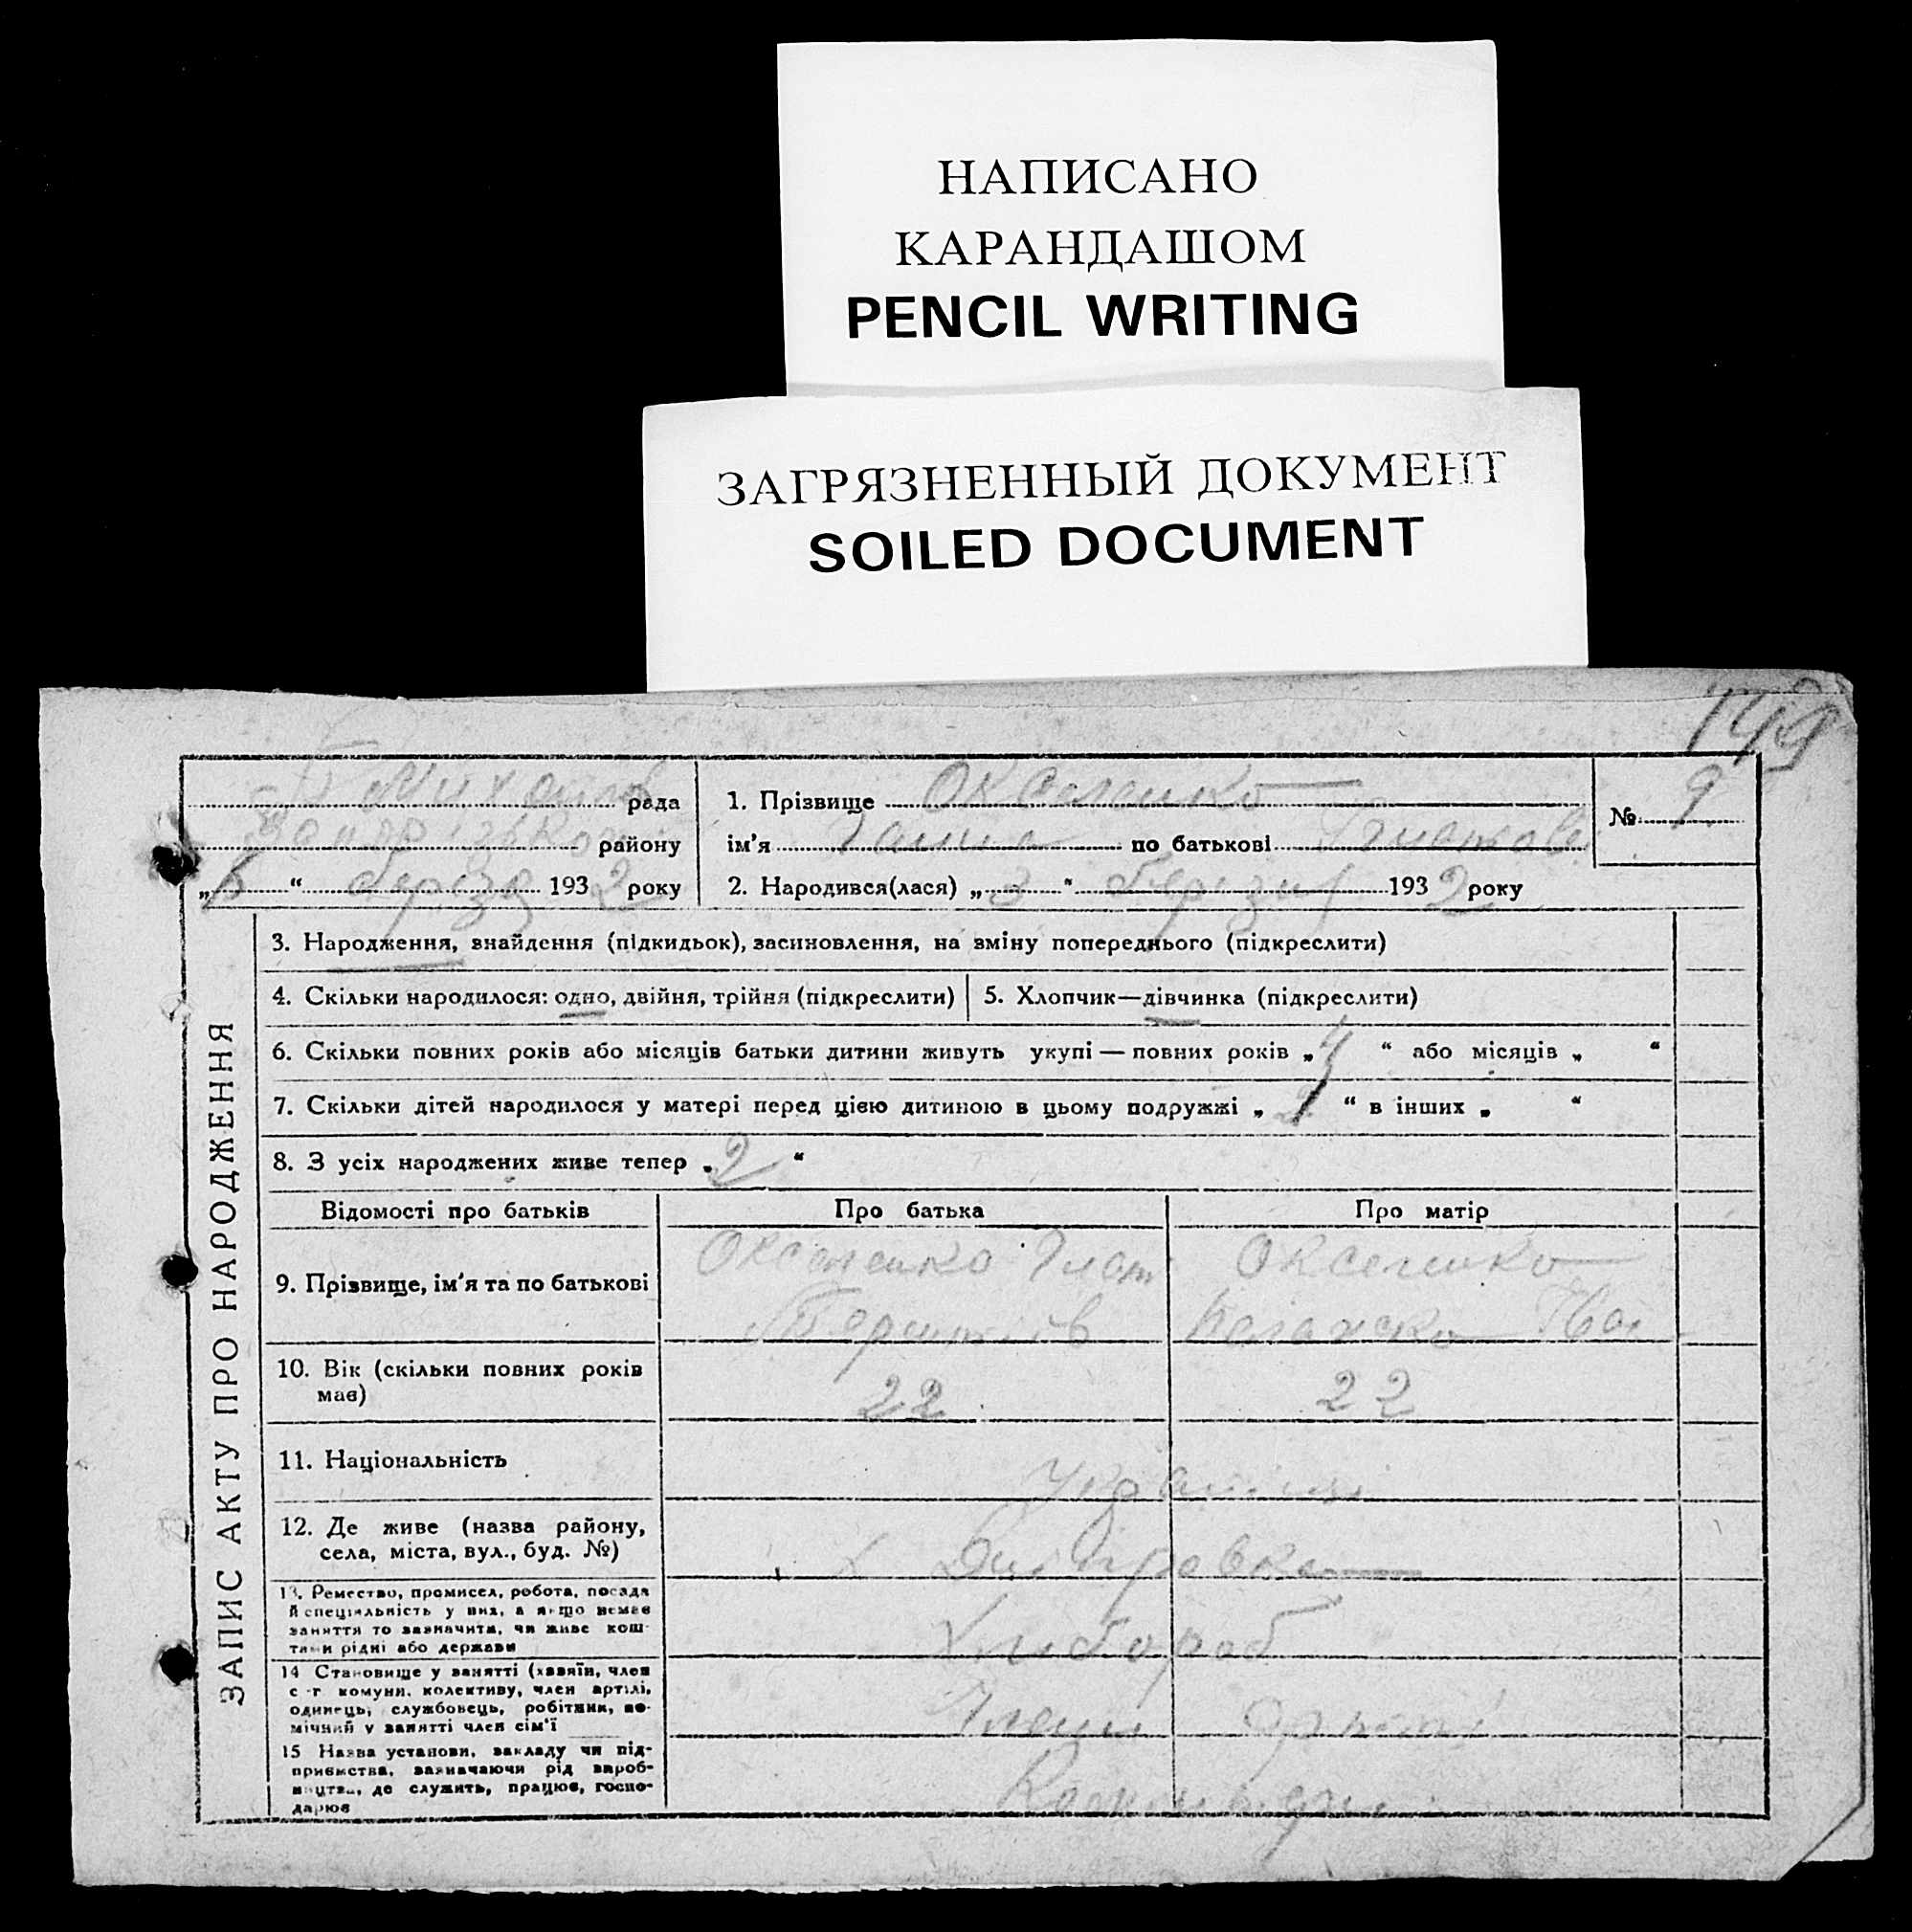 НАПИСАНО
КАРАНДАШОМ
PENCIL WRITING
ЗАГРЯЗНЕННЫЙ ДОКУМЕНТ
SOILED DOCUMENT
149
рада
району
" березня 1932 року
1. Прізвище Оксененко
ім'я Ганна по батькові
2. Народився(лася) „ 3 " березня 1932 року
№ 9
ЗАПИС АКТУ ПРО НАРОДЖЕННЯ
3. Народження, знайдення (підкидьок), засиновлення, на зміну попереднього (підкреслити)
4. Скільки народилося: одно, двійня, трійня (підкреслити)
5. Хлопчик—дівчинка (підкреслити)
6. Скільки повних років або місяців батьки дитини живуть укупі — повних років „ 4 " або місяців „ "
7. Скільки дітей народилося у матері перед цією дитиною в цьому подружжі „ 1 " в інших „ "
8. З усіх народжених живе тепер „ 2 "
Відомості про батьків Про батька Про матір
9. Прізвище, ім'я та по батькові
Оксененко
Оксененко
10. Вік (скільки повних років має)
22 22
11. Національність
Українці
12. Де живе (назва району, села, міста, вул., буд. №)
х Дмитровка
13. Ремество, промисел, робота, посада й спеціяльність у них, а якщо немає заняття то зазначити, чи живе коштами рідні або держави
Хлібороб
14 Становище у занятті (хазяїн, член с.-г. комуни, колективу, член артілі, одинець, службовець, робітник, помічний у занятті член сім'ї
Члени артілі
15 Назва установи, закладу чи підприємства, зазначаючи рід виробництва, де служить, працює, господарює